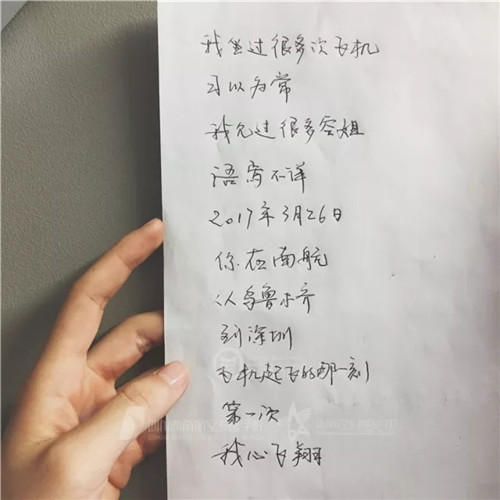 我坐过很多次飞机
习以为常
我见过很多空姐
语焉不详
2017年3月26日
你在南航
从乌鲁木齐
到深圳
飞机起飞的那一刻
第一次
我心飞翔